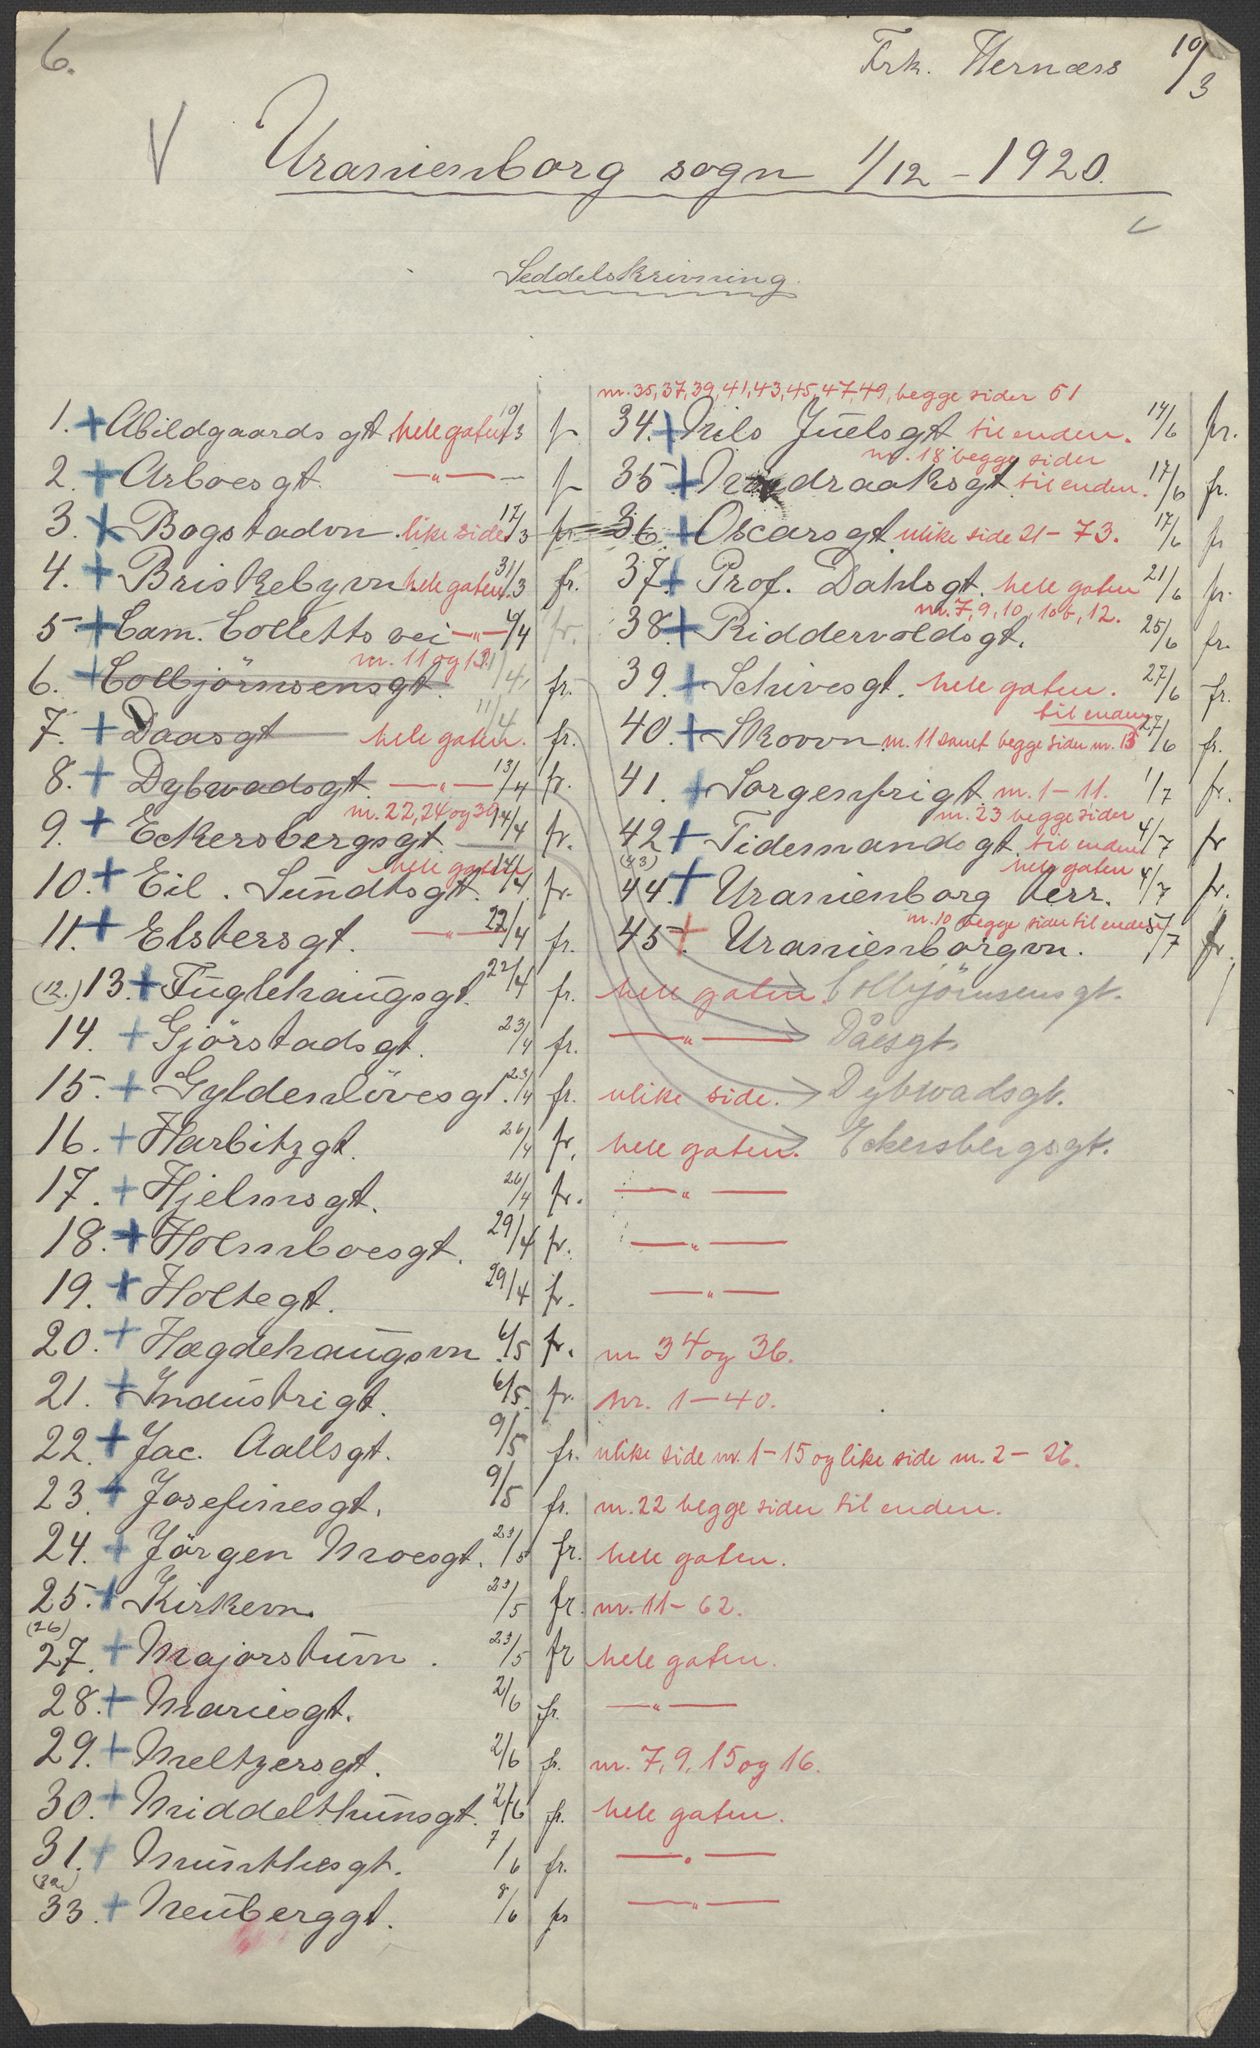 6.
Frk. Hernæss 10/3
V Uranienborg sogn 1/12 - 1920.
Seddelskrivning.
1. + Abildgaards gt. hele gaten 10/3
2. + Arboes gt. —"— —
3. + Bogstadvn. like side 17/3 fr.
4. + Briskebyvn. hele gaten 31/3 fr.
5 + Cam. Colletts vei —"— 4/4 fr.
nr. 11 og 13.
6. + Colbjörnsensgt. 11/4 fr.
7. + Daasgt hele gaten. 11/4 fr.
8. + Dybwadsgt. —"— 13/4 fr.
nr. 22, 24 og 39
9. + Eckersbergsgt. 14/4 fr.
hele gaten
10. + Eil. Sundtsgt. 14/4 fr.
11. + Elstersgt. —"— 22/4 fr.
(12.) 13. + Fuglehaugsgt. 22/4 fr. hele gaten
14. + Gjörstadsgt. 23/4 fr. —"—
15. + Gyldenlövesgt. 23/4 fr. ulike side.
16. + Harbitzgt. 26/4 fr. hele gaten.
17. + Hjelmsgt. 26/4 fr. —"—
18. + Holmboesgt. 29/4 fr. —"—
19. + Holtegt. 29/4 fr. —"—
20. + Hægdehaugsvn. 6/5 fr. nr. 34 og 36.
21. + Industrigt. 6/5 fr. nr. 1-40.
22. + Jac. Aallsgt. 9/5 fr. ulike side nr. 1-15 og like side nr. 2-26.
23. + Josefinesgt. 9/5 fr. nr. 22 begge sider til enden.
24. + Jörgen Moesgt. 23/5 fr. hele gaten.
25. + Kirkevn. 23/5 fr. nr. 11-62.
(26)
27. + Majorstuvn. 23/5 fr hele gaten.
28. + Mariesgt. 2/6 fr. —"—
29. + Meltzersgt. 2/6 fr. nr. 7, 9, 15 og 16.
30. + Middelthunsgt. 2/6 fr. hele gaten.
31. + Munthesgt. 7/6 fr. —"—
(32)
33. + Neuberggt. 8/6 fr —"—
nr. 35, 37, 39, 41, 43, 45, 47, 49, begge sider 51
34. + Nils Juelsgt til enden. 14/6 fr.
nr. 18 begge sider
35 + Nordraaksgt. til enden. 17/6 fr.
36 + Oscarsgt. ulike side 21-73. 17/6 fr
37. + Prof. Dahlsgt. hele gaten 21/6 fr.
nr. 7, 9, 10, 10b, 12.
38. + Riddervoldsgt. 25/6 fr.
39. + Schivesgt. hele gaten. 27/6 fr.
til enden
40. + Skovvn. nr. 11 samt begge sider nr. 13 27/6 fr.
41. + Sorgenfrigt. nr. 1-11. 1/7 fr.
nr. 23 begge sider
42 + Tidemandsgt til enden 4/7 fr
(43) hele gaten
44. + Uranienborg terr. 4/7 fr.
nr. 10 begge sider til enden
45. + Uranienborgvn. 5/7 fr.
Colbjörnsensgt.
Daasgt.
Dybwadsgt.
Eckersbergsgt.